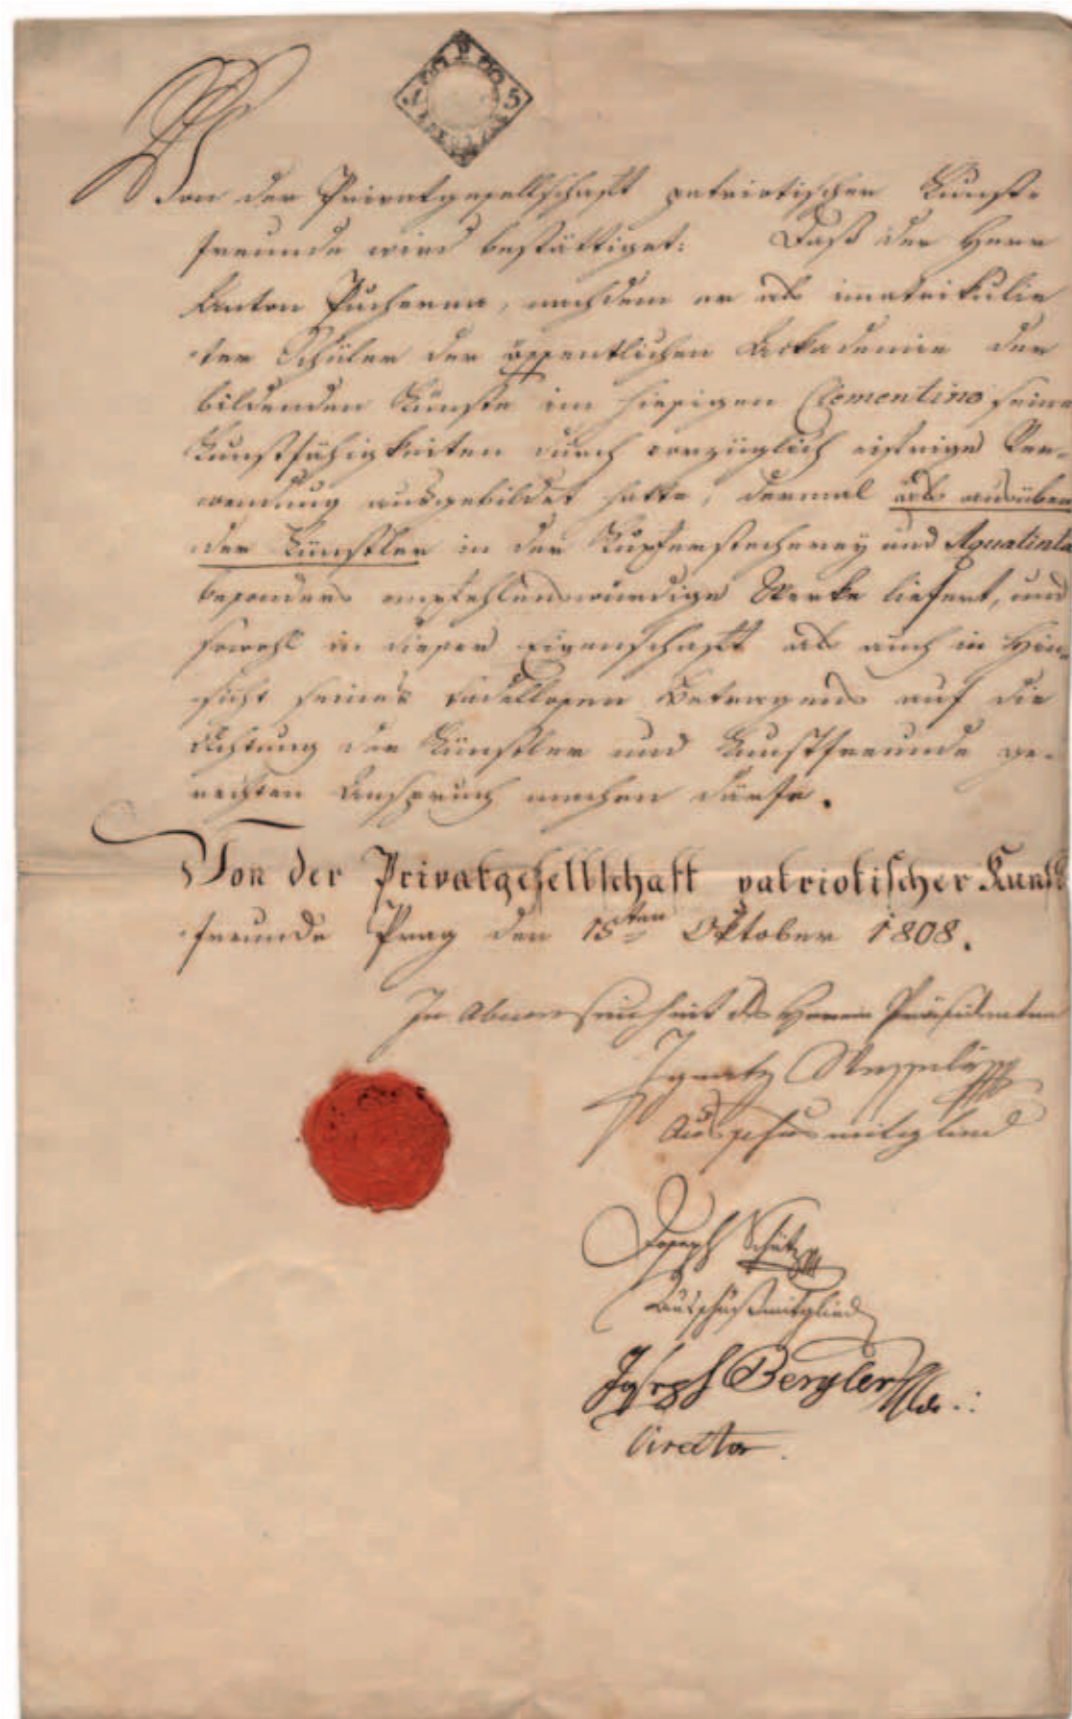 Von der Privatgesellschaft patriotischer Kunst-
freunde wird bestättiget: Daß der Herr
Anton Pucherna, nachdem er als imatrikulir
ter Schüler der öffentlichen Ackademie der
bildenden Künste im hiesigen Clementino seine
Kunstfähigkeiten durch vorzüglich eifrige Ver-
wendung ausgebildet hatte, dermal als ausüben
der Künstler in der Kupferstecherey und Aquatinta
besonders empfehlenswürdige Werke liefert, und
sowohl in dieser Eigenschaft als auch in Hin-
sicht seines tadellosen Betragens auf die
Achtung der Künstler und Kunstfreunde ge-
rechten Anspruch machen dürfe.
Von der Privatgesellschaft patriotischer Kunst
freunde Prag den 15ten Oktober 1808.
In Abwesenheit des Herrn Präsidenten
Ignatz
Ausschusmitglied
Joseph Schütz
Ausschußmitglied
Joseph Bergler
Director.